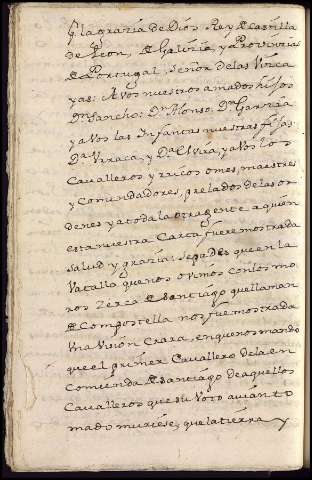 G la grazia de Dios Rey de Castilla
de Leon, de Galizia, y a Provinzias
de Portugal, Señor de las Vizca
yas: A Vos nuestros amados hijos
Dn Sancho: Dn Alonso, Dn Garzia
ya Vos las Infantas nuestras fijas
Da Vrraca, y Da elvira, ya Vos los
Cavalleros y ricos omes, maestres
y Comendadores, prelados de las or
denes ya toda la otra gente a quien
esta nuestra Carta fuere mostrada
Salud y grazia Sepades que en la
Vatalla que nos ovimos con los mo
ros Zerca de Santiago que llaman
de Compostella nos fue mostrada
Una Vision Crara, en que nos mando
que el primer Cavallero de la en
Comienda de Santiago de aquellos
Cavalleros que su Voto avian to
mado muriese, que la tierra y